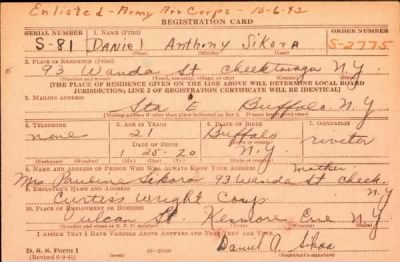 Enlisted - Army Air Corps - 10-6-42
REGISTRATION CARD
SERIAL NUMBER 1. NAME (Print) ORDER NUMBER
S-81 Daniel Anthony Sikora S-2775
2. PLACE OF RESIDENCE (Print)
93 Wanda St Cheektowaga N.Y.
[THE PLACE OF RESIDENCE GIVEN ON THE LINE ABOVE WILL DETERMINE LOCAL BOARD
JURISDICTION; LINE 2 OF REGISTRATION CERTIFICATE WILL BE IDENTICAL]
3. MAILING ADDRESS
Sta E Buffalo N.Y.
[Mailing address if other than place indicated on line 2. If same, insert word same]
4. TELEPHONE 5. AGE IN YEARS 6. PLACE OF BIRTH 7. OCCUPATION
none 21 Buffalo riveter
DATE OF BIRTH
1 25 20 N.Y.
(Exchange) (Number) (Mo.) (Day) (Yr.) (State or country)
8. NAME AND ADDRESS OF PERSON WHO WILL ALWAYS KNOW YOUR ADDRESS mother
Mrs Pauline Sikora 93 Wanda St Cheek.
9. EMPLOYER'S NAME AND ADDRESS N.Y.
Curtiss Wright Corp
10. PLACE OF EMPLOYMENT OR BUSINESS
Vulcan St. Kenmore Erie N.Y
(Street and number or R. F. D. number) (Town) (County) (State)
I AFFIRM THAT I HAVE VERIFIED ABOVE ANSWERS AND THAT THEY ARE TRUE.
D. S. S. Form 1
(Revised 6-9-41) Daniel A. Sikora